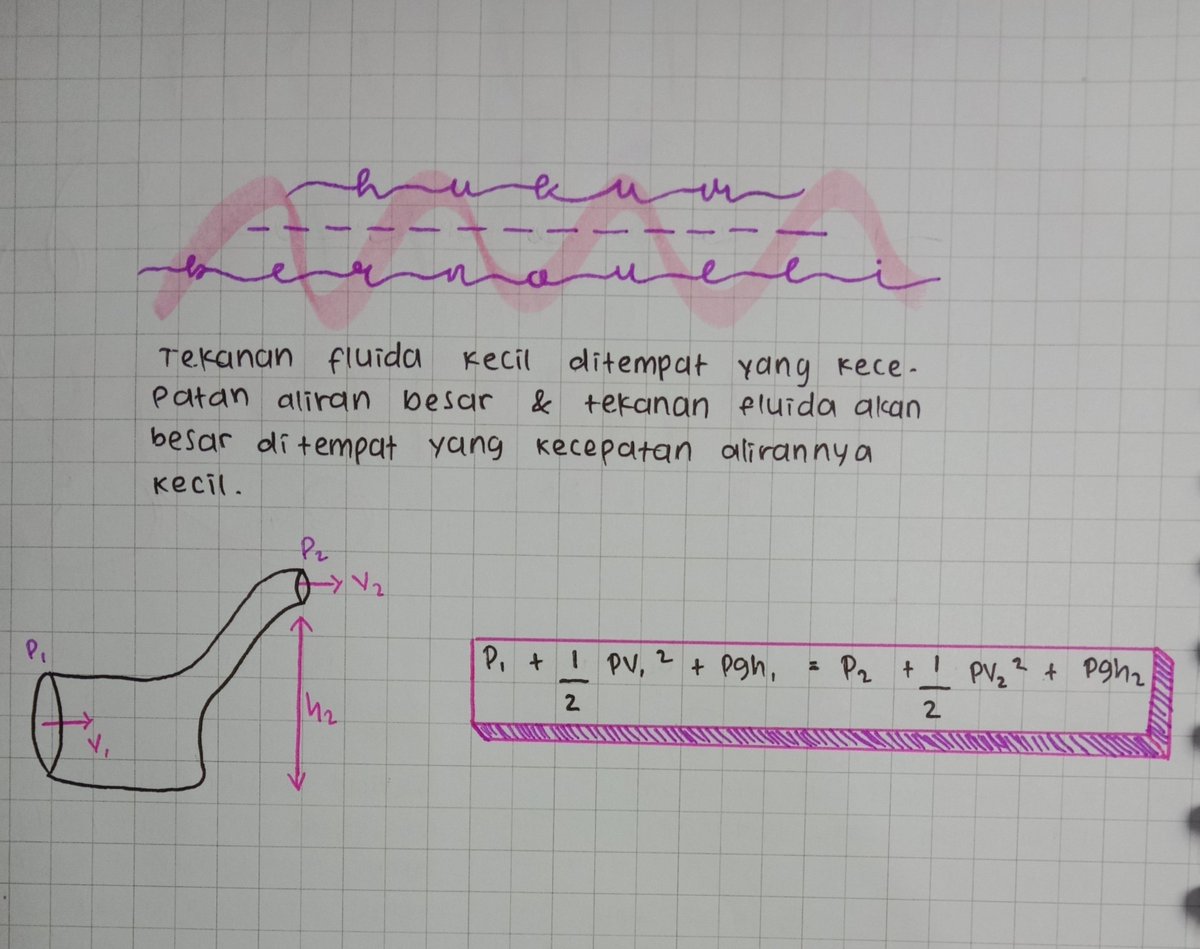 hukum
bernoulli
Tekanan fluida kecil ditempat yang kece-
patan aliran besar & tekanan fluida akan
besar ditempat yang kecepatan alirannya
kecil.
P₂
V₂
P₁
V₁
h₂
P₁ + 1/2 PV₁² + Pgh₁ = P₂ + 1/2 PV₂² + Pgh₂